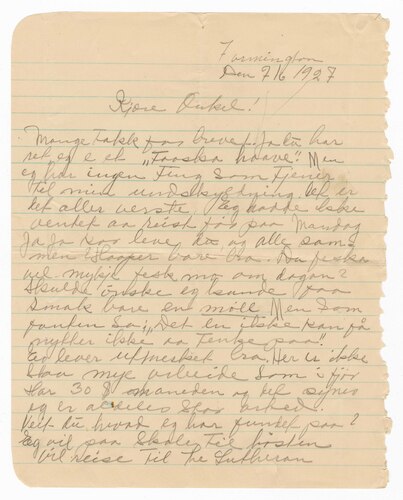 Farmington
Den 7/6 1927
Kjere Onkel!
Mange Takk for brevet. Ja du har
ret eg e et "Torska haave". Men
eg har ingen Ting som tjener
til min undskyldning. Det er
det aller verste. Eg hadde ikke
ventet aa reist før paa Mandag
Ja Ja kor leve du og alle sam
men i Cooper bare bra. Du fiska
vel mykje fesk no om dagan?
Skulde ønske eg kunde faa
smak bare en møll Men som
fanten sa: "Det en ikke kan få
nytter ikke aa tenke paa".
Eg lever utmerket bra Her er ikke
saa mye arbeide som i fjor
Har 30 $ maaneden og det synes
eg er aldeles
Veit du hvad eg har fundet paa?
Eg vil paa Skole til høsten
Vil reise til the Lutheran